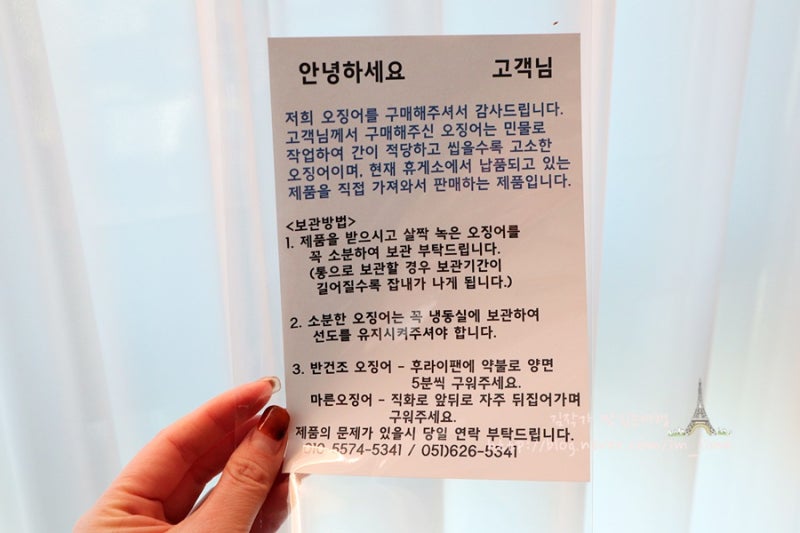 안녕하세요 고객님
저희 오징어를 구매해주셔서 감사드립니다.
고객님께서 구매해주신 오징어는 민물로
작업하여 간이 적당하고 씹을수록 고소한
오징어이며, 현재 휴게소에서 납품되고 있는
제품을 직접 가져와서 판매하는 제품입니다.
<보관방법>
1. 제품을 받으시고 살짝 녹은 오징어를
꼭 소분하여 보관 부탁드립니다.
(통으로 보관할 경우 보관기간이
길어질수록 잡내가 나게 됩니다.)
2. 소분한 오징어는 꼭 냉동실에 보관하여
선도를 유지시켜주셔야 합니다.
3. 반건조 오징어 - 후라이팬에 약불로 양면
5분씩 구워주세요.
마른오징어 - 직화로 앞뒤로 자주 뒤집어가며
구워주세요.
제품의 문제가 있을시 당일 연락 부탁드립니다.
010 5574-5341 / 051)626-5341